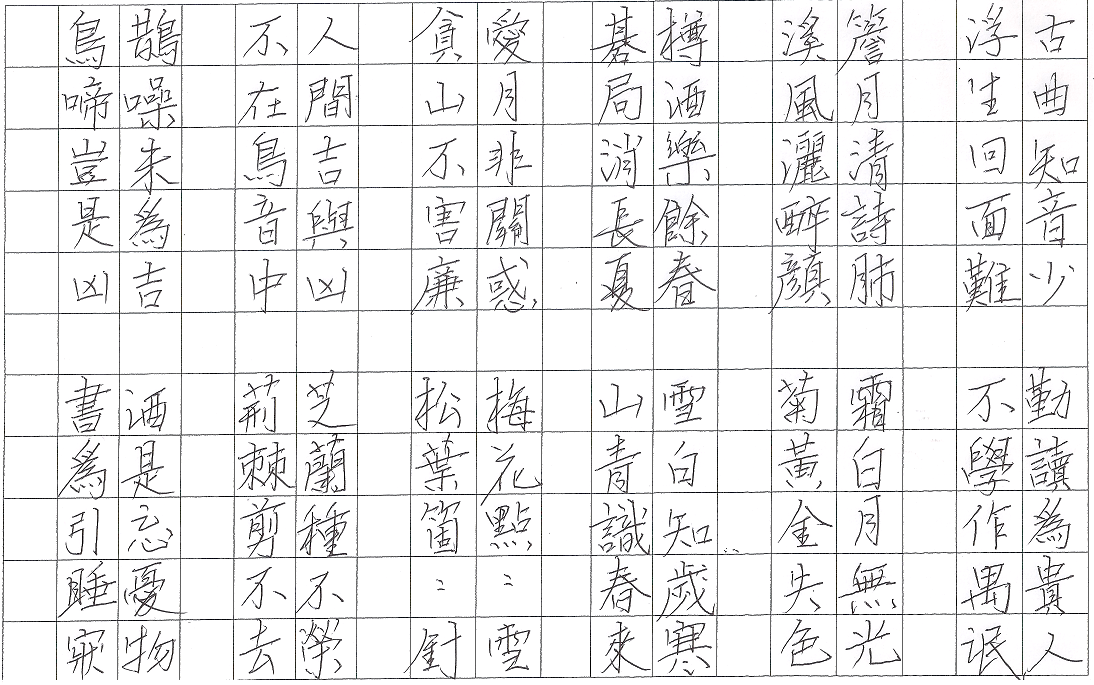 古曲知音少
浮生回面難
簷月清詩肺
溪風灑醉顔
樽酒樂餘春
碁局消長夏
愛月非關惑
貪山不害廉
人間吉與凶
不在鳥音中
鵲噪未為吉
鳥啼豈是凶
勤讀為貴人
不學作禺氓
霜白月無光
菊黃金失色
雪白知歲寒
山青識春來
梅花點〻雪
松葉箇〻針
芝蘭種不榮
荊棘剪不去
酒是忘憂物
書為引睡